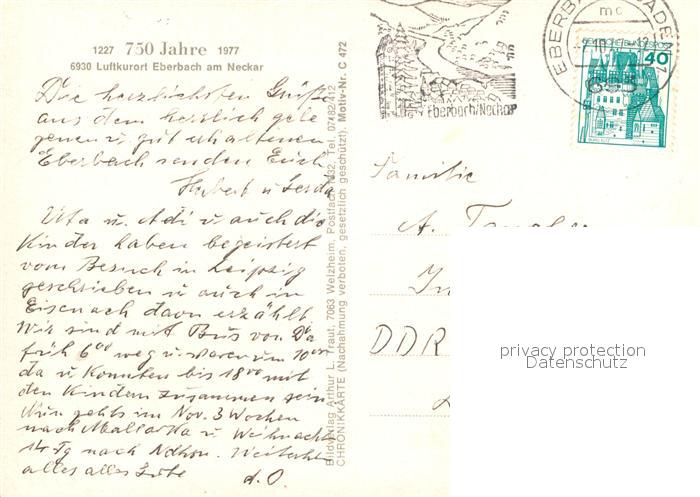 1227 750 Jahre 1977
6930 Luftkurort Eberbach am Neckar
Die herzlichsten Grüße
aus dem herrlich gele
genen u. gut erhaltenen
Eberbach senden Euch
Hubert u Gerda
Uta u. Adi u auch die
Kinder haben begeistert
vom Besuch in Leipzig
geschrieben u auch in
Eisenach davon erzählt.
Wir sind mit Bus von Da
früh 6⁰⁰ weg u. waren um 10⁰⁰
da u Konnten bis 18⁰⁰ mit
den Kindern zusammen sein
Nun gehts im Nov. 3 Wochen
nach Mallorka u. Weihnacht
14 Tg nach Ndhsn. Weiterhin
alles alles Gute d. O.
Bildverlag Arthur L. Traut, 7063 Welzheim, Postfach 1132, Tel. 07482/412
CHRONIKKARTE (Nachahmung verboten, gesetzlich geschützt). Motiv-Nr. C 472
Eberbach/Neckar
mc
DEUTSCHE BUNDESPOST
40
BURG ELTZ
Familie
A.
DDR
privacy protection
Datenschutz